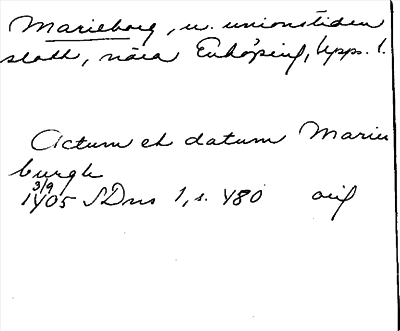 Marieborg, u. unionstiden
slott, nära Enköping, Upps. l.
Actum et datum Marie
burgh
3/9
1405 SDns 1, s. 480 orig